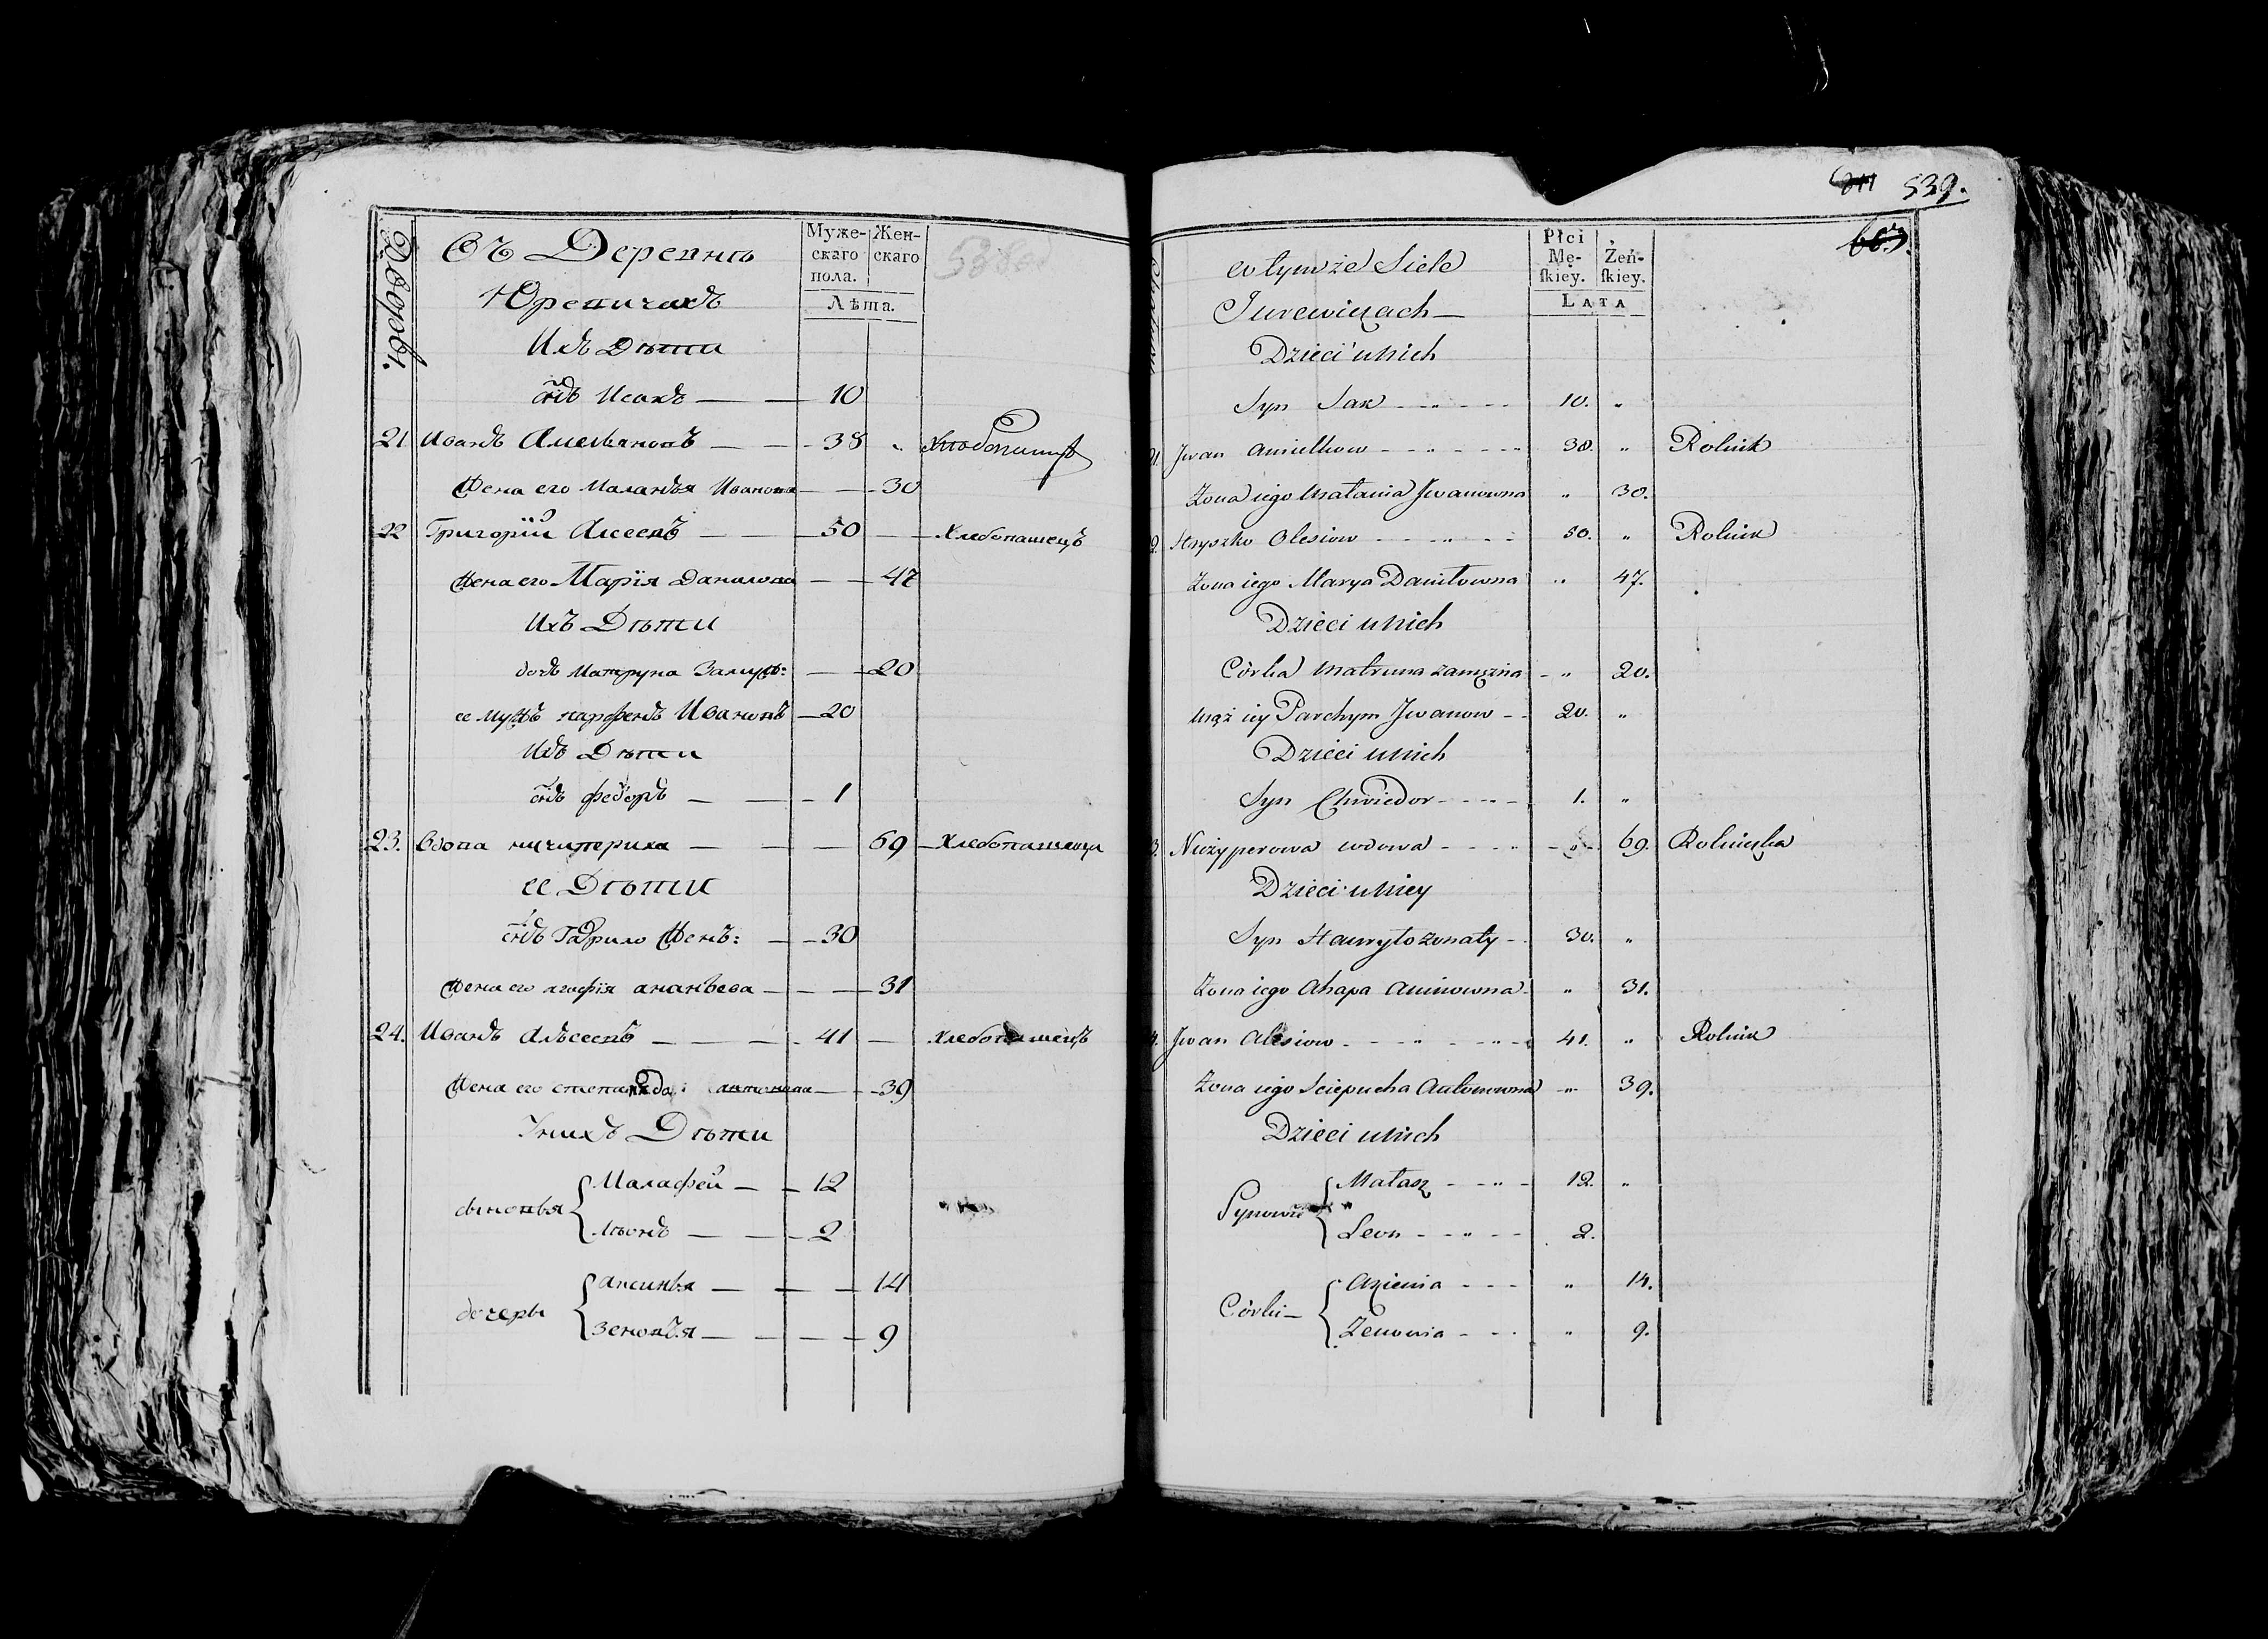 Дворовъ.
Въ Деревнѣ
Юревичахъ
Муже-
скаго
пола.
Жен-
скаго
Лѣта.
538об
Ихъ Дѣти
сынъ Исакъ — — 10
21 Иванъ Амельяновъ — — 38 „ Хлебопашецъ
Жена его Маланья Иванова — — 30
22 Григорій Алсеевъ — — 50 — Хлебопашецъ
Жена его Марія Данилова — — 47
Ихъ Дѣти
дочь Матруна Замуж: — — 20
ее мужъ парфенъ Ивановъ — 20
Ихъ Дѣти
сынъ федоръ — — 1
23. Вдова ничиперика — — — 69 — Хлебопашеица
ее Дѣти
сынъ Гаврило Жень: — 30
Жена его агафія ананьева — — 31
24. Иванъ Алѣсеевъ — — — 41 — Хлебопашецъ
Жена его степанида антонова — — 39
У нихъ Дѣти
сыновья
Малафей — — 12
лѣонъ — — 2
дочеры
аксинья — — — 14
Зеновья — — — 9
539.
w tymże Siele
Jurewiczach —
Płci
Mę-
skiey.
Żeń-
skiey.
LATA
Dzieci u Nich
Syn Sak 10. „
Jwan Amielkow 38. „ Rolnik
Żona iego Matania Jwanowna „ 30.
Hryszko Olesiow 50. „ Rolnik
Żona iego Marya Daniłowna „ 47.
Dzieci u Nich
Córka Matruna zamężna „ 20.
Mąż iey Parchym Jwanow 20. „
Dzieci u Nich
Syn Chwiedor 1. „
Niczyperowa wdowa „ 69. Rolniczka
Dzieci u Niey
Syn Hawryło żonaty 30. „
Żona iego Ahapa Aninowna „ 31.
Jwan Alesiow 41. „ Rolnik
Żona iego Sciepucha Antonowna „ 39.
Dzieci u Nich
Synowie
Małasz 12. „
Leon 2.
Córki —
Axienia „ 14.
Zenowia „ 9.